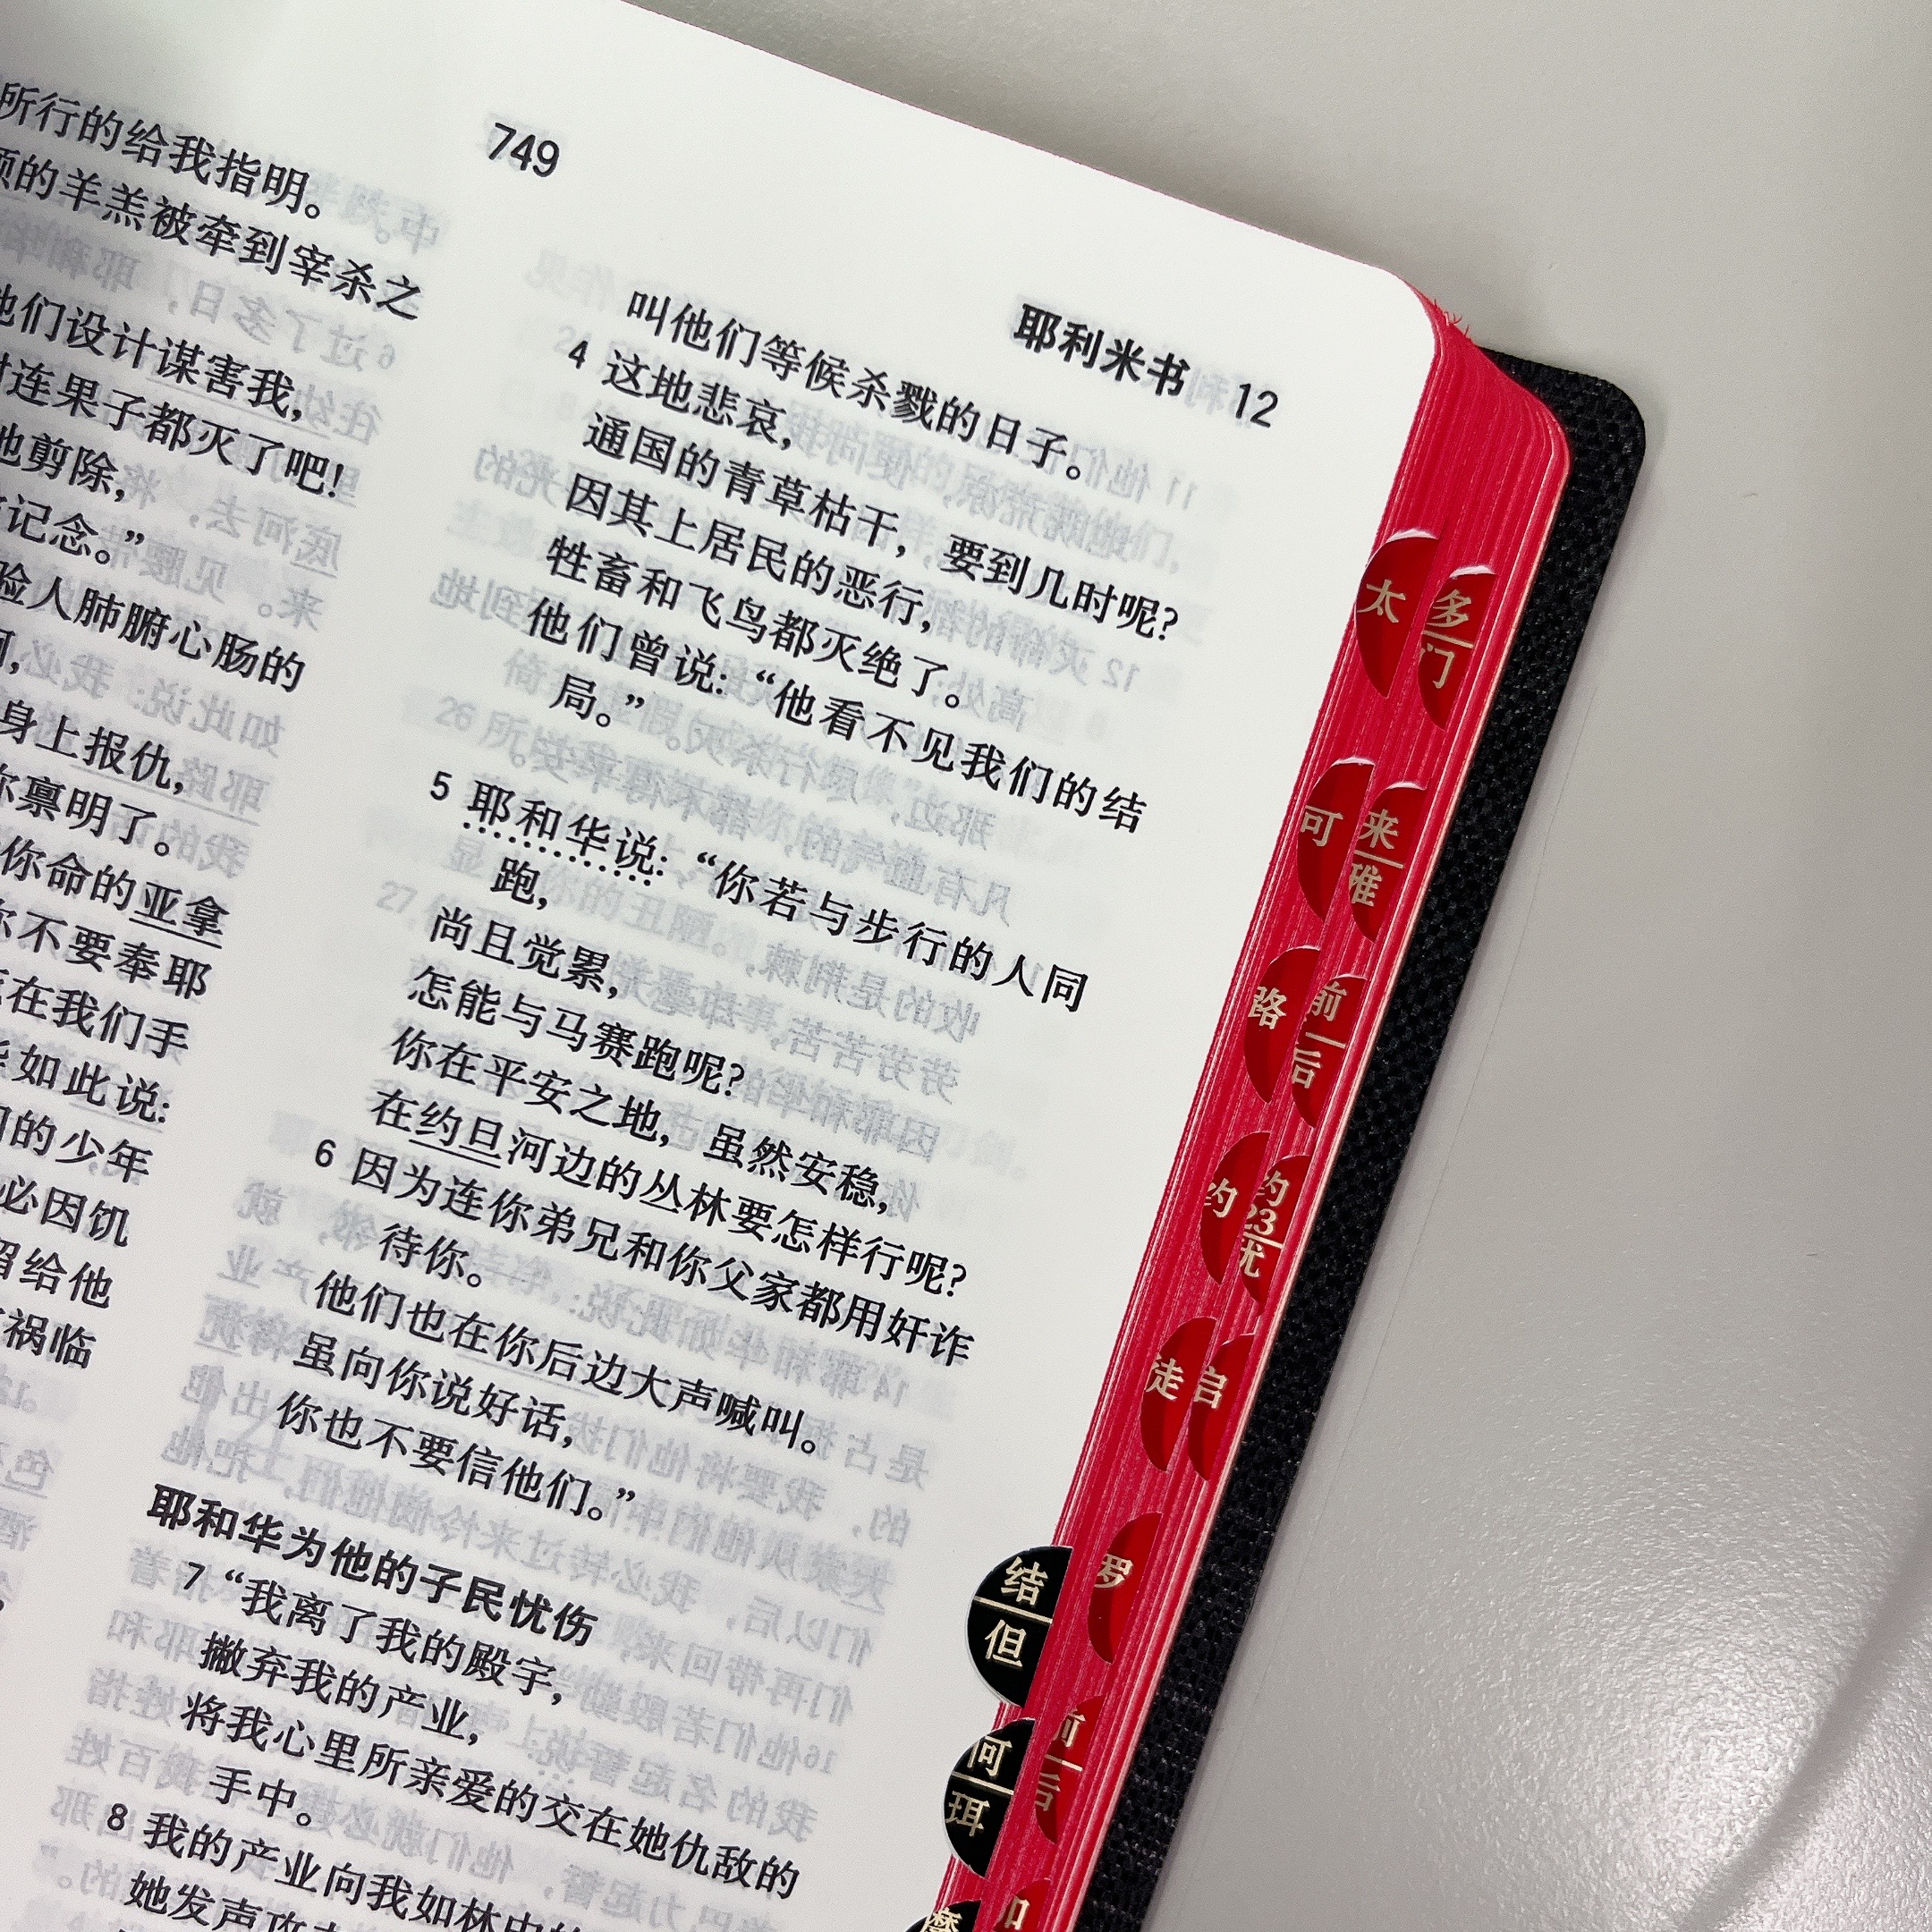 749
耶利米书 12
所行的给我指明。
的羊羔被牵到宰杀之
他们设计谋害我，
连果子都灭了吧！
剪除，
记念。”
验人肺腑心肠的
身上报仇，
你禀明了。
你命的亚拿
你不要奉耶
在我们手
如此说：
的少年
必因饥
留给他
祸临
叫他们等候杀戮的日子。
4 这地悲哀，
通国的青草枯干，要到几时呢？
因其上居民的恶行，
牲畜和飞鸟都灭绝了。
他们曾说：“他看不见我们的结
局。”
5 耶和华说：“你若与步行的人同
跑，
尚且觉累，
怎能与马赛跑呢？
你在平安之地，虽然安稳，
在约旦河边的丛林要怎样行呢？
6 因为连你弟兄和你父家都用奸诈
待你。
他们也在你后边大声喊叫。
虽向你说好话，
你也不要信他们。”
耶和华为他的子民忧伤
7 “我离了我的殿宇，
撇弃我的产业，
将我心里所亲爱的交在她仇敌的
手中。
8 我的产业向我如林中
她发声
太
多
门
可
来
雅
路
前
后
约
约
23
犹
徒
启
罗
结
但
前
后
何
珥
加